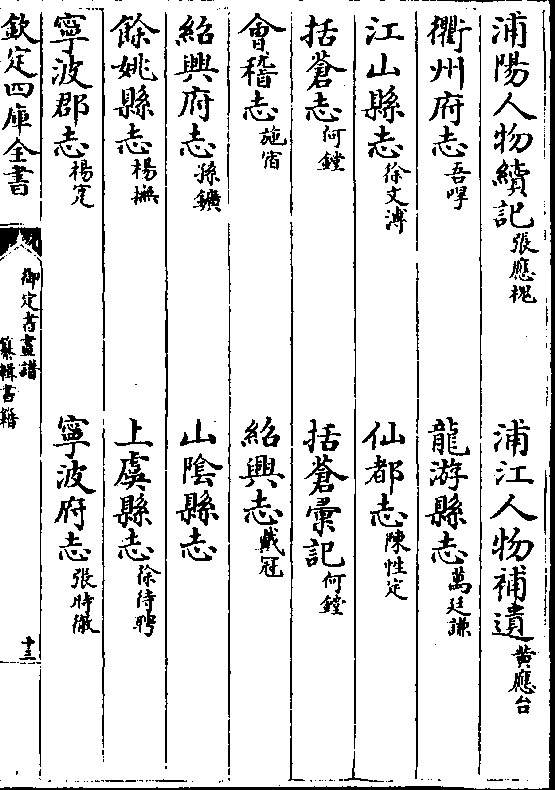 浦陽人物續記張應槐 浦江人物補遺黄應台
衢州府志吾㖔 龍游縣志萬廷謙
江山縣志徐文溥 仙都志陳性定
括蒼志何鏜 括蒼彚記何鏜
會稽志施宿 紹興志戴冠
紹興府志孫鑛 山隂縣志
餘姚縣志楊撫 上虞縣志徐待聘
寧波郡志楊寔 寧波府志張時徹
欽定四庫全書
御定書畫譜
纂輯書籍
十三